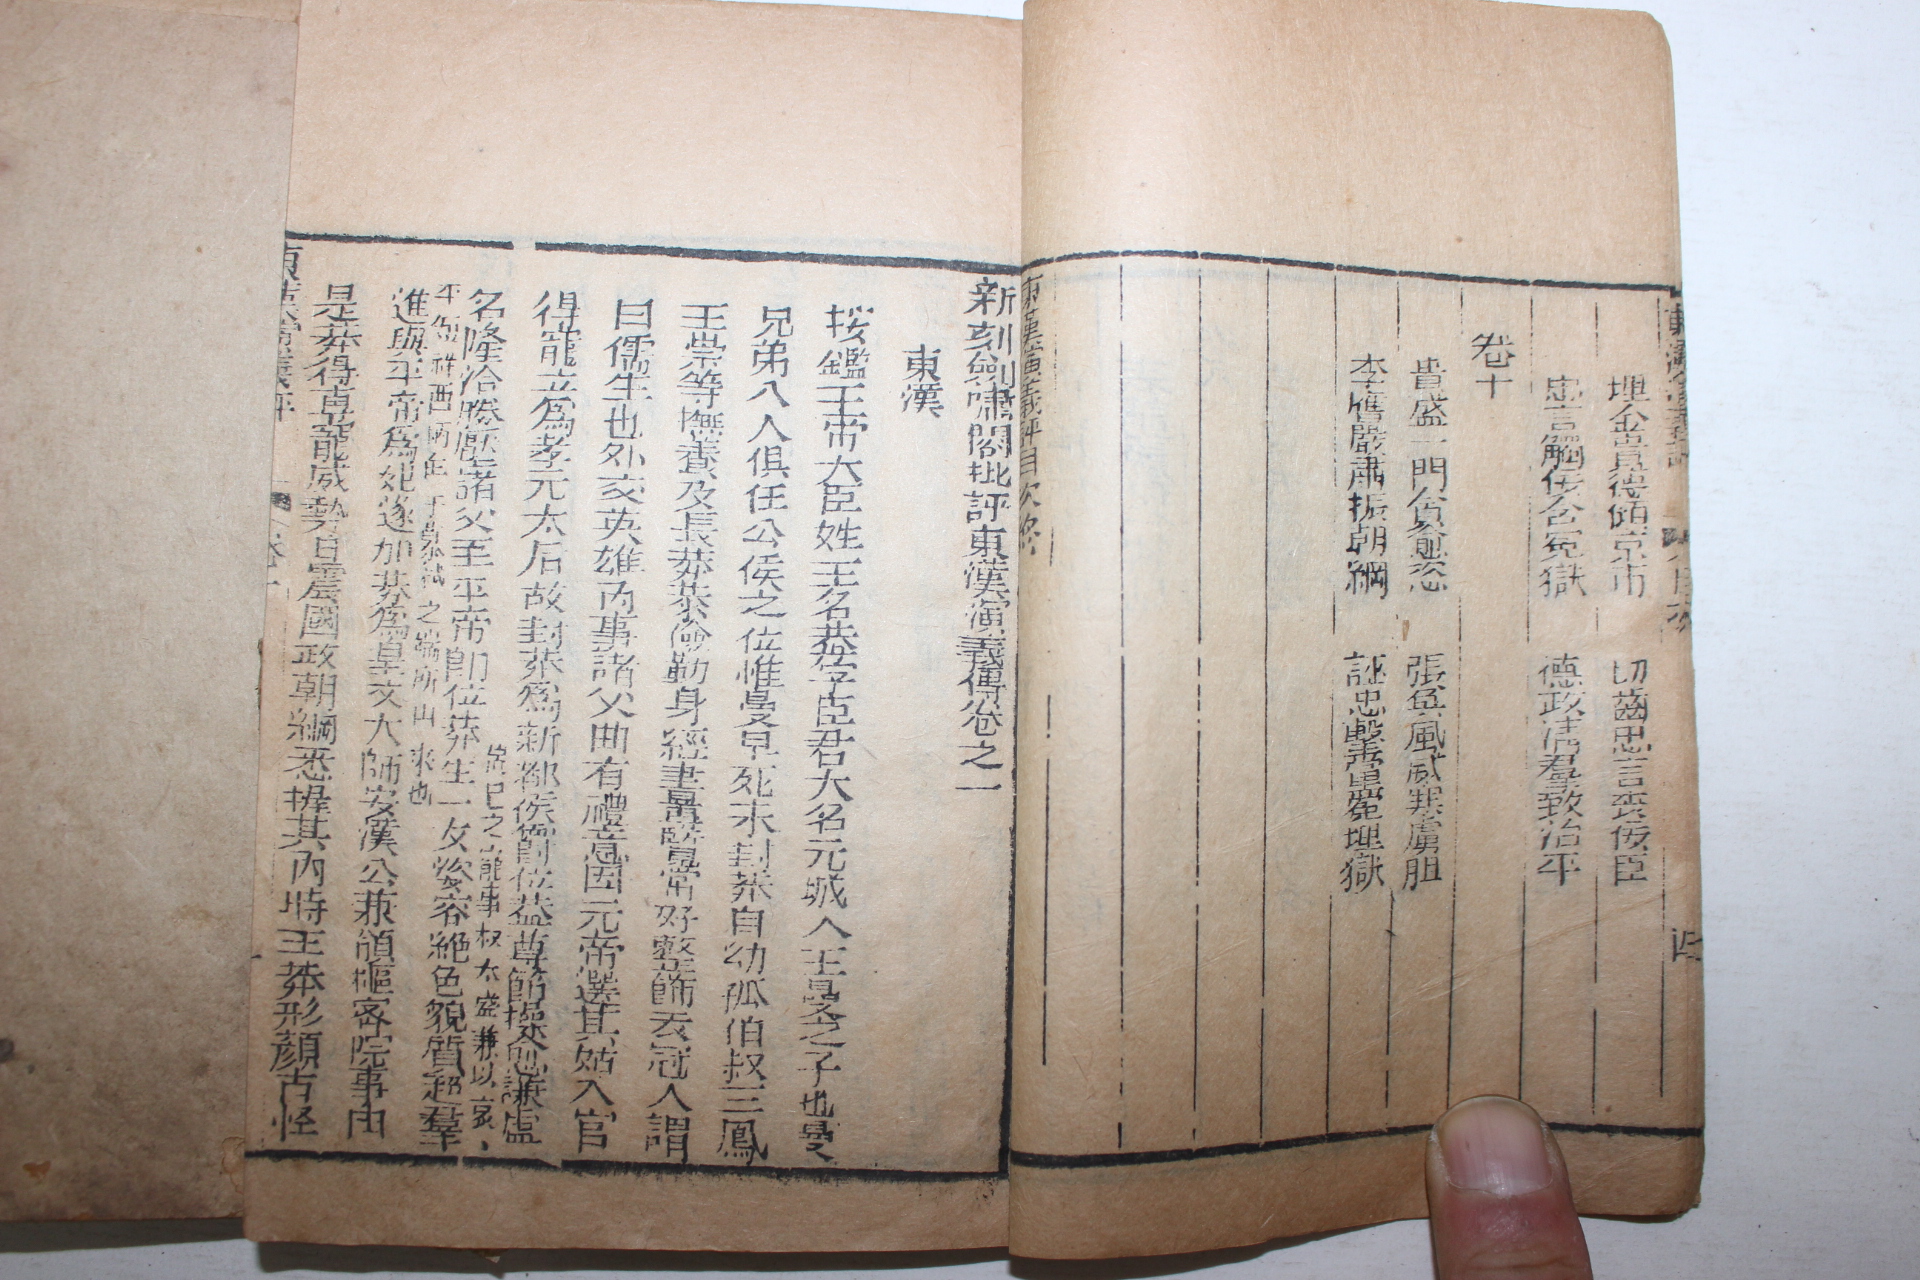 東漢演義評
目次
四
埋金貴德傾京市
切齒忠言喪佞臣
忠言觸佞含冤獄
德政清羣致治平
卷十
貴盛一門貪愈恣
張奐風威寒虜胆
李膺嚴肅振朝綱
誣忠擊黨罷冤埋獄
東漢演義評目次終
新刻劍嘯閣批評東漢演義傳卷之一
東漢
按鑑王帝大臣姓王名莽字臣君大名元城人王曼之子也曼
兄弟八人俱任公侯之位惟曼早死未封莽自幼孤伯叔三鳳
王崇等撫養及長莽恭儉勤身經書博覽常好整飾衣冠人謂
曰儒生也外交英雄內事諸父曲有禮意因元帝選其姑入宮
得寵立為孝元太后故封莽為新都侯爵位益尊節操愈謙虛
名隆洽勝歷諸父至平帝卽位莽生一女姿容絶色貌質超羣
進與平帝為妃遂加莽為皇丈大師安漢公兼領樞密院事由
是莽得專寵威勢日震國政朝綱悉握其內時王莽形顏古怪
東漢演義評
卷一